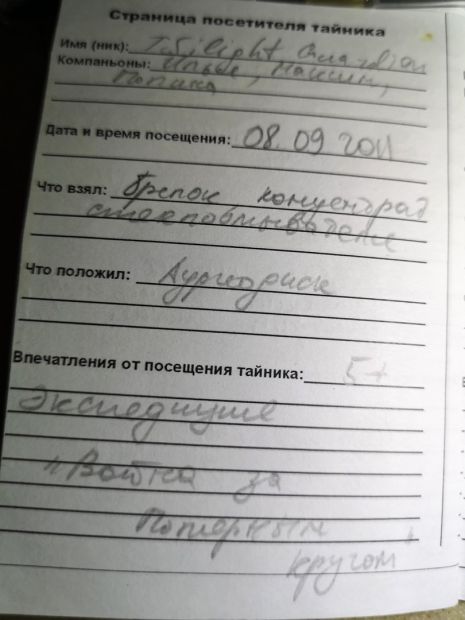 Страница посетителя тайника
Имя (ник): Twilight Guardian
Компаньоны:
Дата и время посещения: 08.09 2011
Что взял: брелок концентрат
стеклоомывателя
Что положил: Аудиодиск
Впечатления от посещения тайника: 5+
Экспедиция
"Война за
Полярным
кругом"